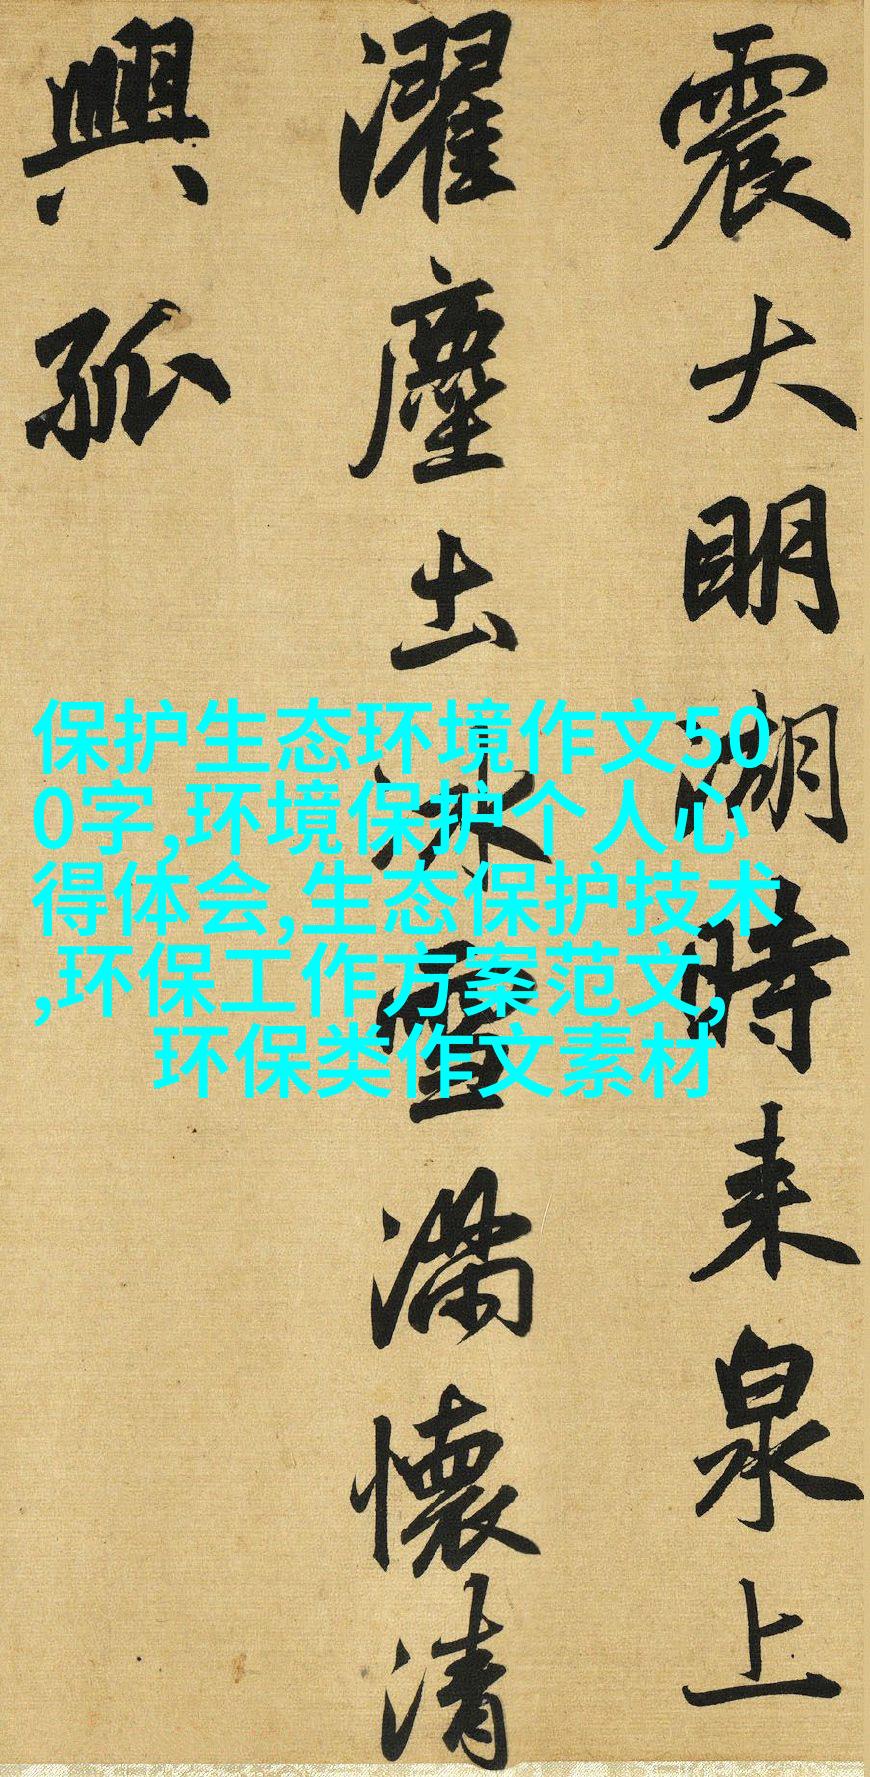 震大明湖時来泉上
濯塵出冰雪滿懷清
興孤
保护生态环境作文50
0字,环境保护个人心
得体会,生态保护技术
,环保工作方案范文,
环保类作文素材